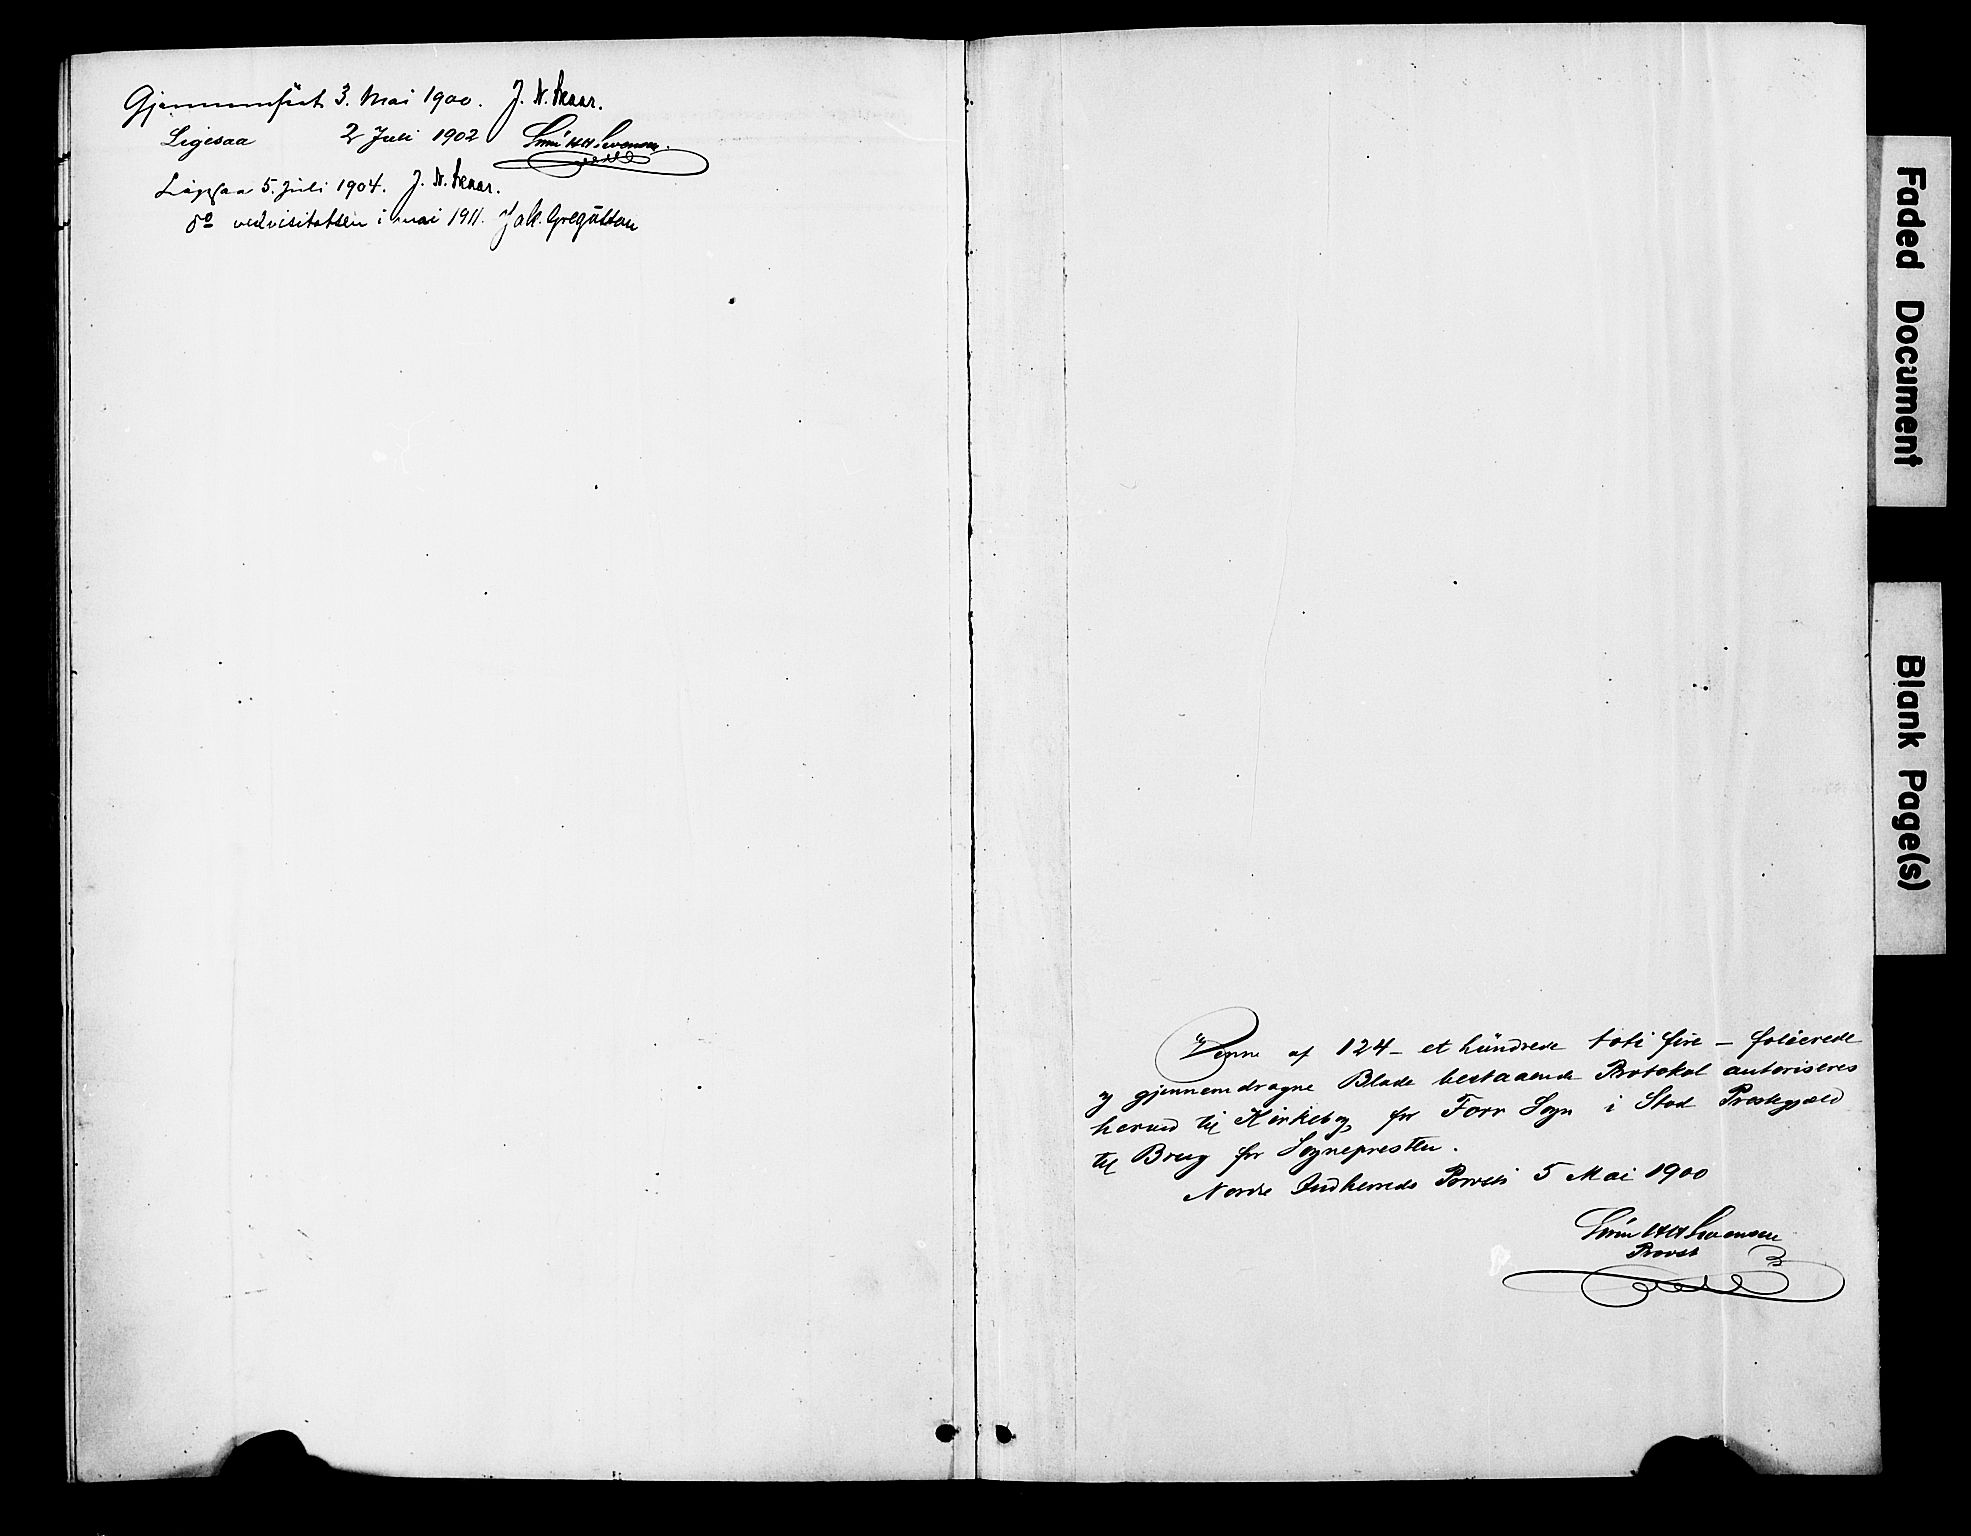 Gjennemseet 3. Mai 1900. J. N. Skaar.
Ligesaa 2 Juli 1902
Ligesaa 5. Juli 1904. J. N. Skaar.
do ved visitatsen i mai 1911. Jak.
Denne af 124 - et hundrede toti fire - folierede
og gjennemdragne Blade bestaaende Protokol autoriseres
herved til Kirkebog for Forr Sogn i Stod Prestegjæld
til Brug for Sognepresten.
Nordre Indherreds Provsti 5 Mai 1900
Svensen
Provst
Faded Document
Blank Page(s)